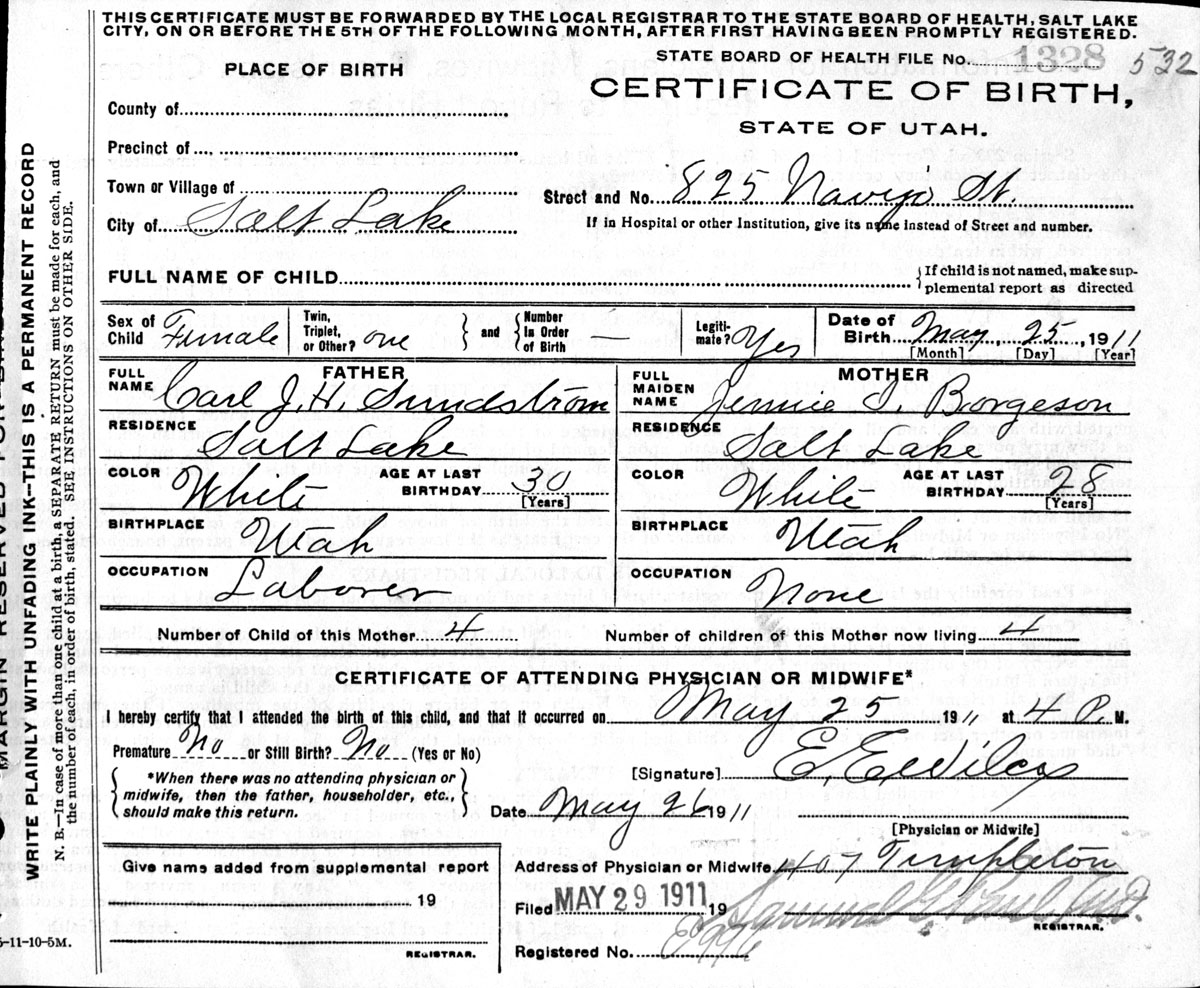 THIS CERTIFICATE MUST BE FORWARDED BY THE LOCAL REGISTRAR TO THE STATE BOARD OF HEALTH, SALT LAKE
CITY, ON OR BEFORE THE 5TH OF THE FOLLOWING MONTH, AFTER FIRST HAVING BEEN PROMPTLY REGISTERED.
STATE BOARD OF HEALTH FILE No. 1328 532
PLACE OF BIRTH
CERTIFICATE OF BIRTH,
STATE OF UTAH.
County of
Precinct of
Town or Village of
City of Salt Lake
Street and No. 825 Navajo St.
If in Hospital or other Institution, give its name instead of Street and number.
FULL NAME OF CHILD
{If child is not named, make sup-
plemental report as directed
Sex of Child Female
Twin, Triplet, or Other? one } and { Number In Order of Birth
Legiti-mate? Yes
Date of Birth May 25, 1911
[Month] [Day] [Year]
FATHER
FULL NAME Carl J. H. Sundstrom
RESIDENCE Salt Lake
COLOR White AGE AT LAST BIRTHDAY 30 [Years]
BIRTHPLACE Utah
OCCUPATION Laborer
MOTHER
FULL MAIDEN NAME Jennie Borgeson
RESIDENCE Salt Lake
COLOR White AGE AT LAST BIRTHDAY 28 [Years]
BIRTHPLACE Utah
OCCUPATION None
Number of Child of this Mother 4 Number of children of this Mother now living 4
CERTIFICATE OF ATTENDING PHYSICIAN OR MIDWIFE*
I hereby certify that I attended the birth of this child, and that it occurred on May 25 1911 at 4 P. M.
Premature No or Still Birth? No (Yes or No)
{*When there was no attending physician or
midwife, then the father, householder, etc.,
should make this return.}
[Signature] E. E. Wilcox
Date May 26 1911
[Physician or Midwife]
Give name added from supplemental report
19
REGISTRAR.
Address of Physician or Midwife 407 Templeton
Filed MAY 29 1911 19
REGISTRAR.
Registered No.
5-11-10-5M.
WRITE PLAINLY WITH UNFADING INK—THIS IS A PERMANENT RECORD
N. B.—In case of more than one child at a birth, a SEPARATE RETURN must be made for each, and
the number of each, in order of birth, stated. SEE INSTRUCTIONS ON OTHER SIDE.